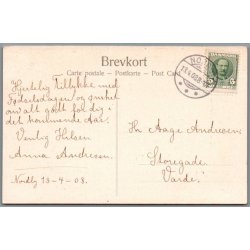 Brevkort
Carte postale - Postkarte - Post Card
Hjertelig Tillykke med
Fødselsdagen og ønsket
om alt godt for dig i
det kommende Aar.
Venlig Hilsen
Anna Andresen
Nordby 13-4-08.
Hr. Aage Andresen
Storegade
Varde.